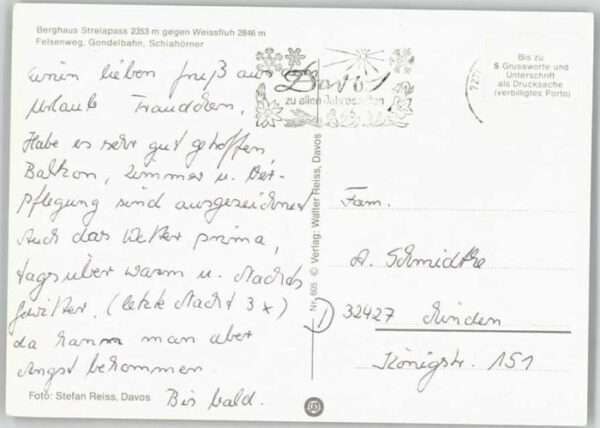 Berghaus Strelapass 2353 m gegen Weissfluh 2846 m
Felsenweg, Gondelbahn, Schiahörner
Einen lieben Gruß aus
Urlaub Traudchen,
Habe es sehr gut getroffen
Balkon, Zimmer u. Ver-
pflegung sind ausgezeichnet
Auch das Wetter prima,
tagsüber warm u. Nachts
Gewitter. (letzte Nacht 3x)
da kann man aber
Angst bekommen
Bis bald.
Foto: Stefan Reiss, Davos
Nr. 605 © Verlag: Walter Reiss, Davos
Davos
zu allen Jahreszeiten
Bis zu
5 Grussworte und
Unterschrift
als Drucksache
(verbilligtes Porto)
Fam.
A. Schmidtke
32427 Minden
Königstr. 151